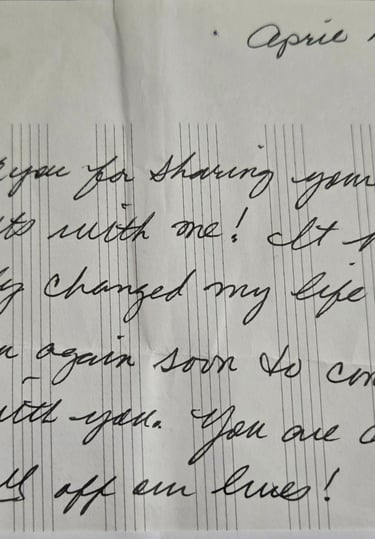 April
you for sharing your
with me! It
changed my life
again soon to
with you. You are
off our lives!